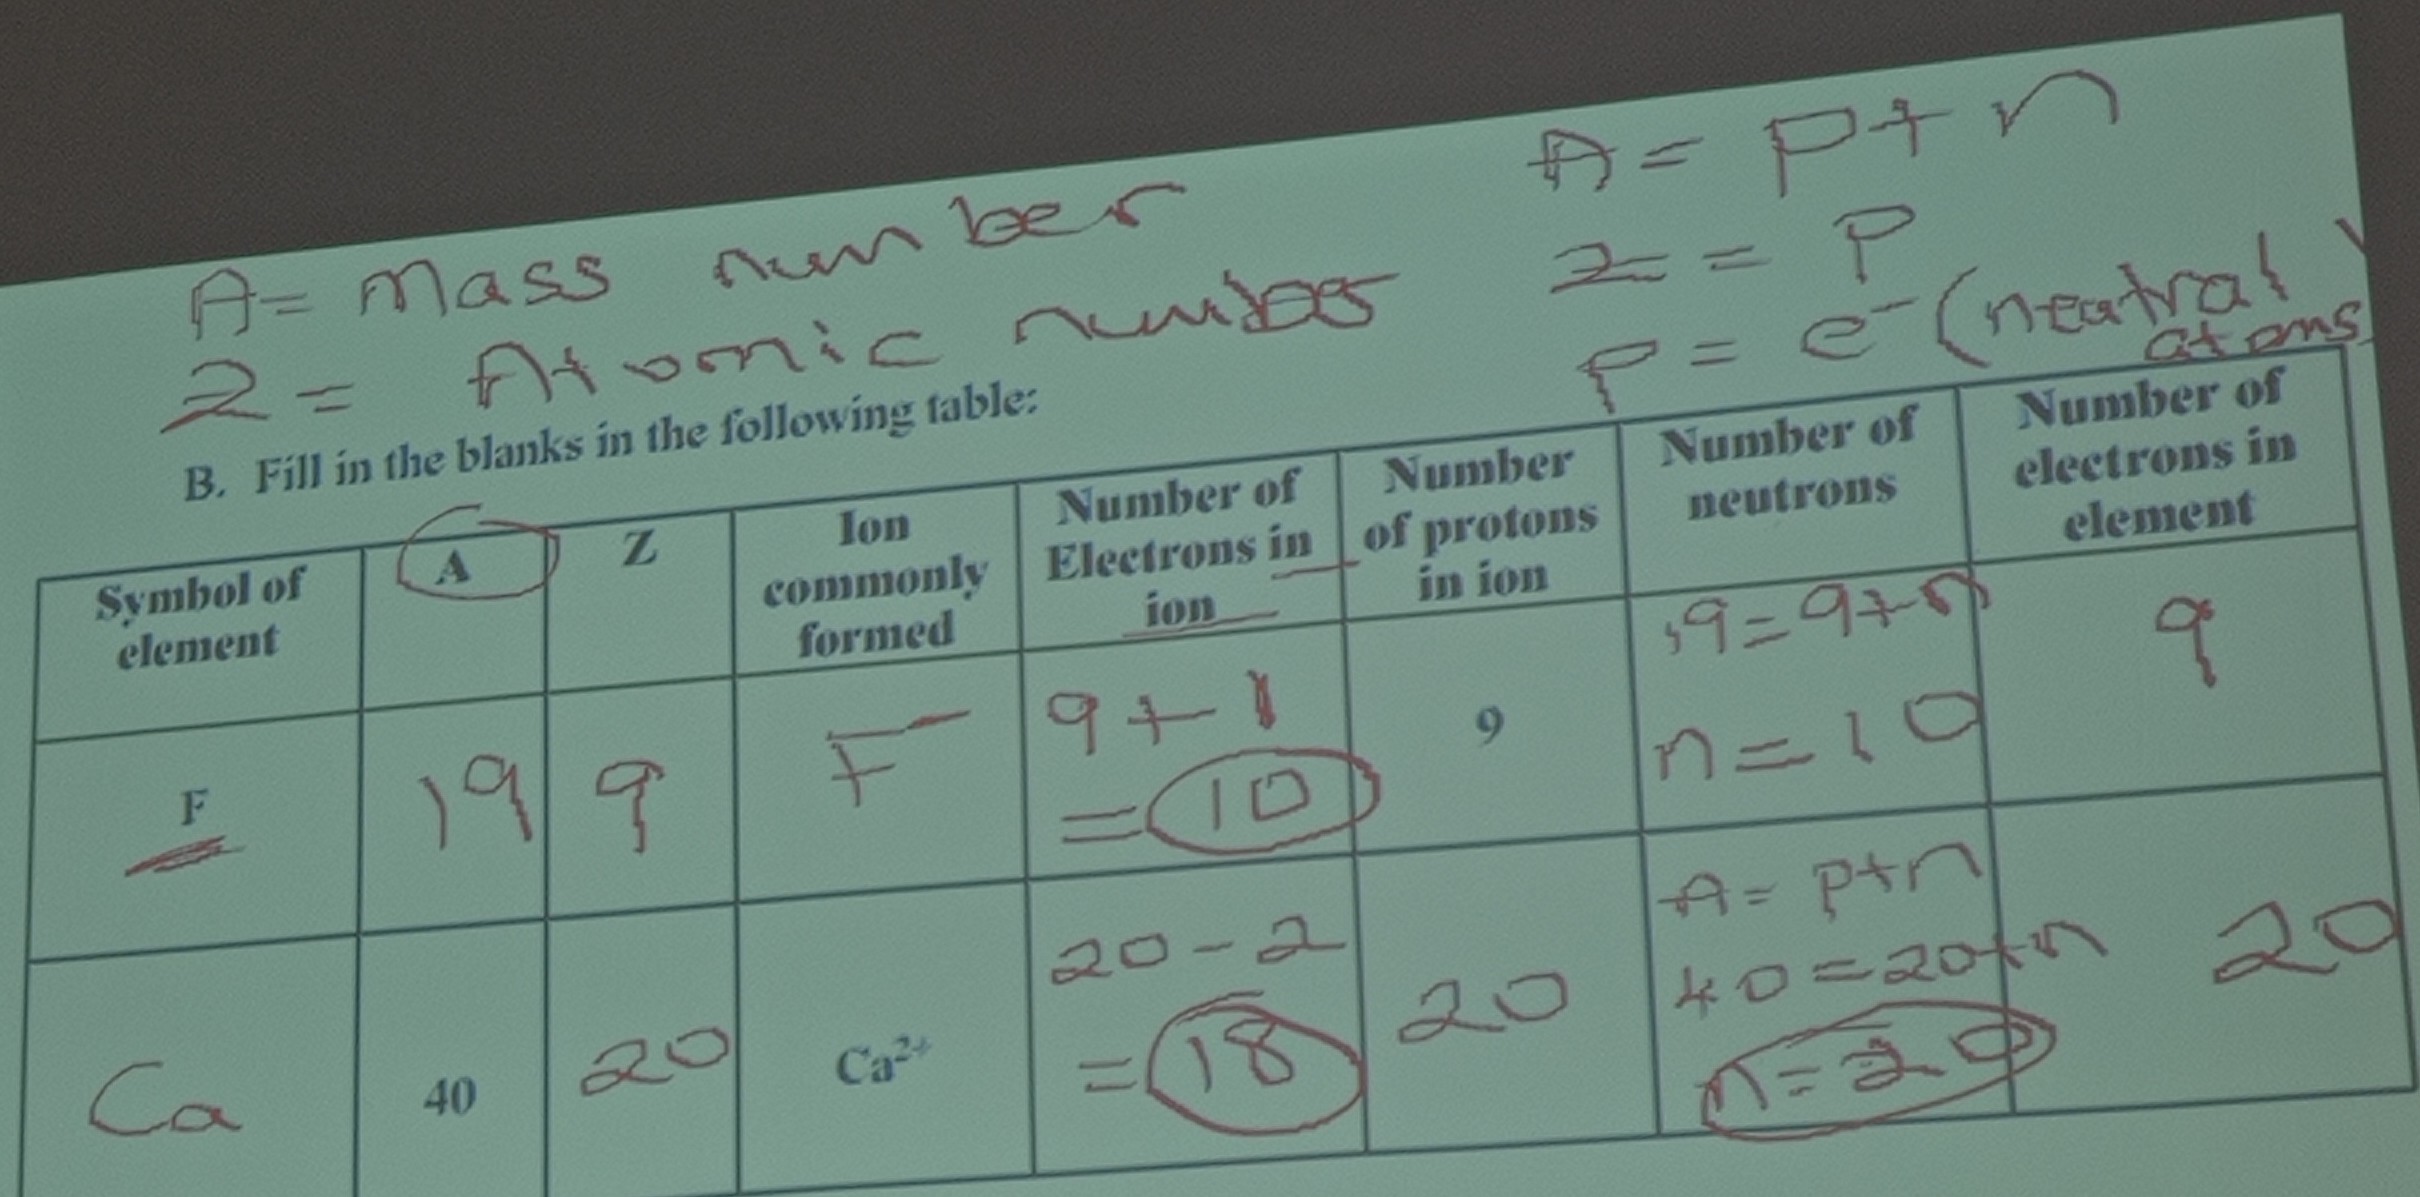 A = Mass number
Z = Atomic number
A = P + n
Z = P
P = e⁻ (neutral atoms)
B. Fill in the blanks in the following table:
Symbol of element
A
Z
Ion commonly formed
Number of Electrons in ion
Number of protons in ion
Number of neutrons
Number of electrons in element
F
19
9
F⁻
9 + 1
= 10
9
19 = 9 + n
n = 10
9
Ca
40
20
Ca²⁺
20 - 2
= 18
20
A = P + n
40 = 20 + n
n = 20
20